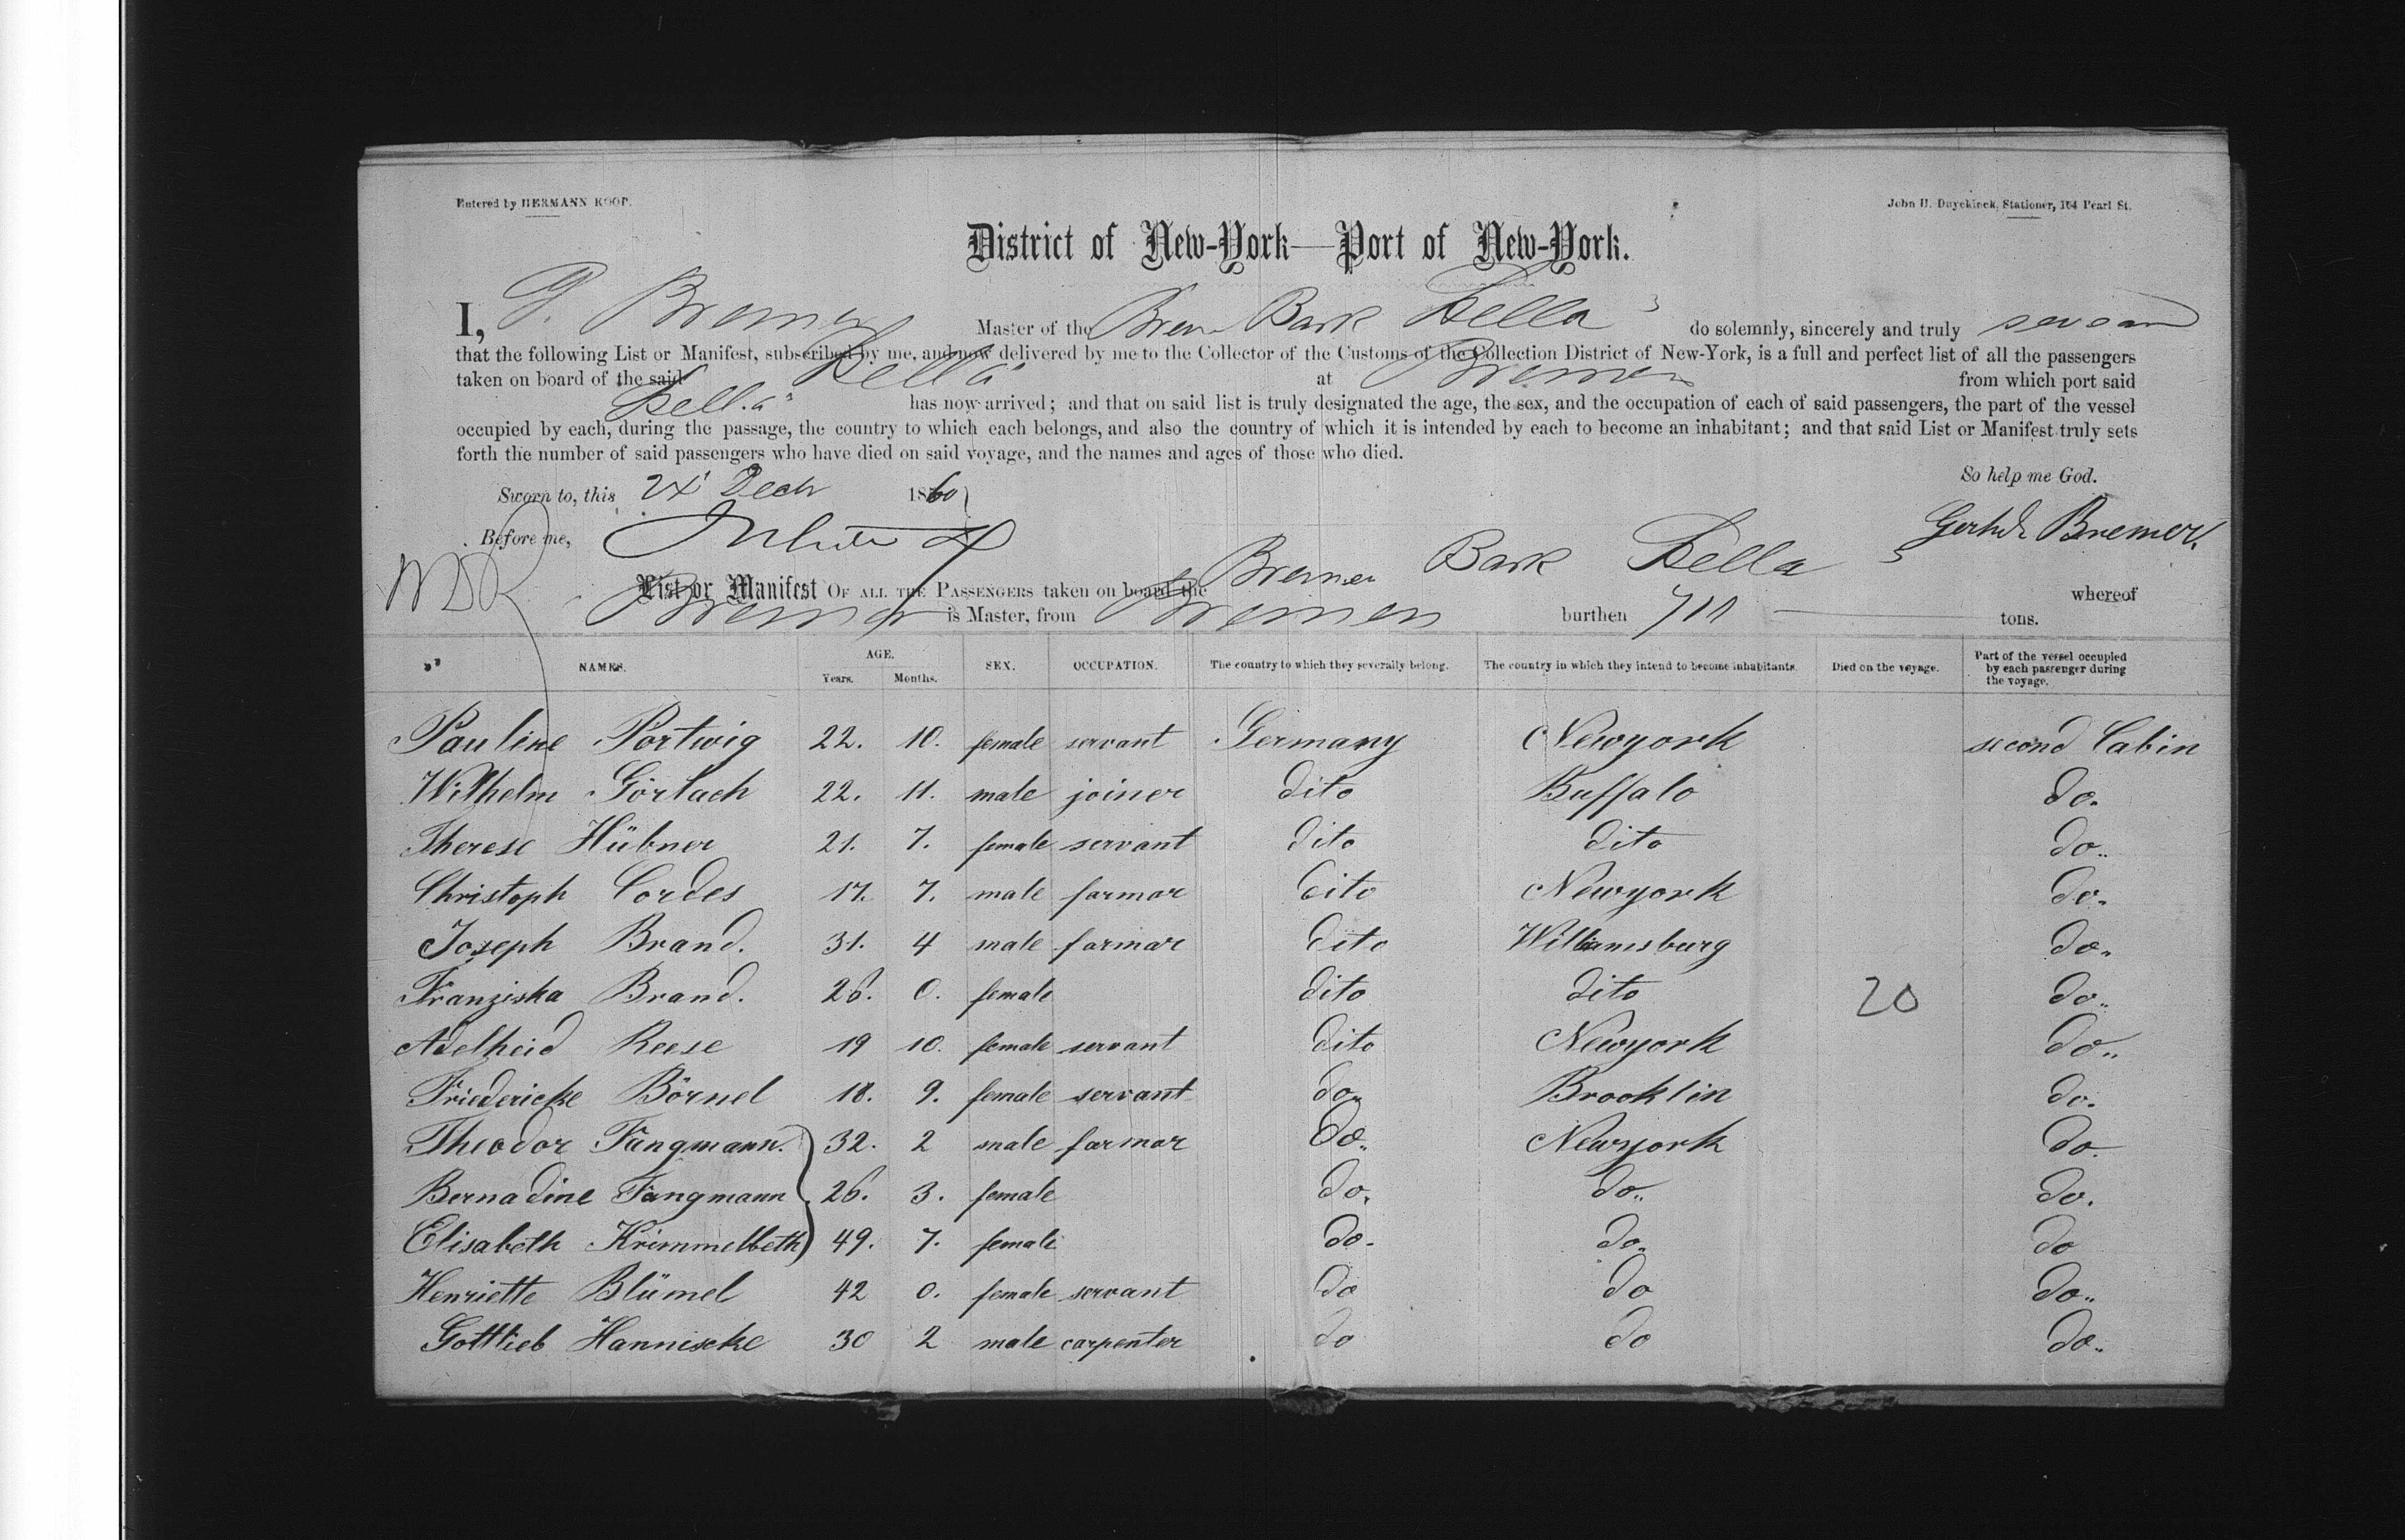 Entered by HERMANN KOOP.
John H. Duyckinck, Stationer, 164 Pearl St.
District of New-York—Port of New-York.
I, G. Bremer Master of the Brem Bark Hella do solemnly, sincerely and truly swear
that the following List or Manifest, subscribed by me, and now delivered by me to the Collector of the Customs of the Collection District of New-York, is a full and perfect list of all the passengers
taken on board of the said Hella at Bremen from which port said
Hella has now arrived; and that on said list is truly designated the age, the sex, and the occupation of each of said passengers, the part of the vessel
occupied by each, during the passage, the country to which each belongs, and also the country of which it is intended by each to become an inhabitant; and that said List or Manifest truly sets
forth the number of said passengers who have died on said voyage, and the names and ages of those who died.
So help me God.
Sworn to, this 24 Decbr 1860
Before me,
Gerhd. Bremer.
List or Manifest OF ALL THE PASSENGERS taken on board the Bremer Bark Hella whereof
Bremer is Master, from Bremen burthen 711 tons.
NAMES. AGE. Years. Months. SEX. OCCUPATION. The country to which they severally belong. The country in which they intend to become inhabitants. Died on the voyage. Part of the vessel occupied by each passenger during the voyage.
Pauline Portwig 22. 10. female servant Germany Newyork second Cabin
Wilhelm Görlach 22. 11. male joiner dito Buffalo do.
Therese Hübner 21. 7. female servant dito dito do..
Christoph Cordes 17. 7. male farmar dito Newyork do.
Joseph Brand. 31. 4 male farmar dito Williamsburg do.
Franziska Brand. 26. 0. female dito dito 20 do..
Adelheid Reese 19 10. female servant dito Newyork do..
Friedericke Börnel 18. 9. female servant do.. Brooklin do.
Theodor Fangmann. 32. 2 male farmar do.. Newyork do.
Bernadine Fangmann 26. 3. female do. do.. do.
Elisabeth Krimmelbeth 49. 7. female do. do. do
Henriette Blümel 42 0. female servant do do do..
Gottlieb Hannischke 30 2 male carpenter do do do..